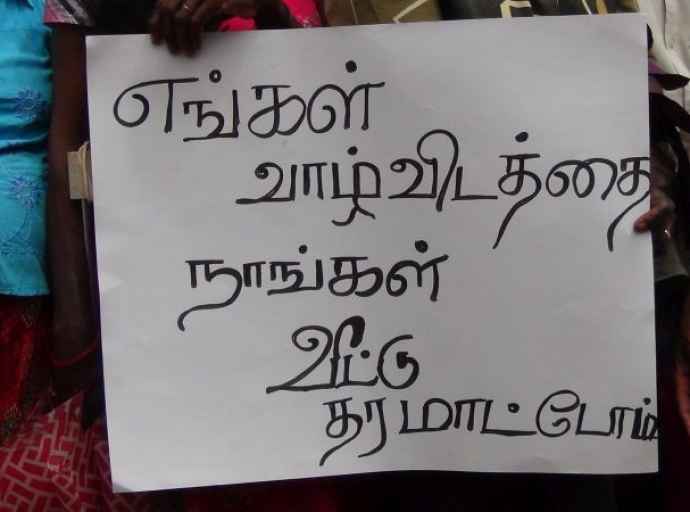 எங்கள்
வாழ்விடத்தை
நாங்கள்
வீட்டு
தரமாட்டோம்